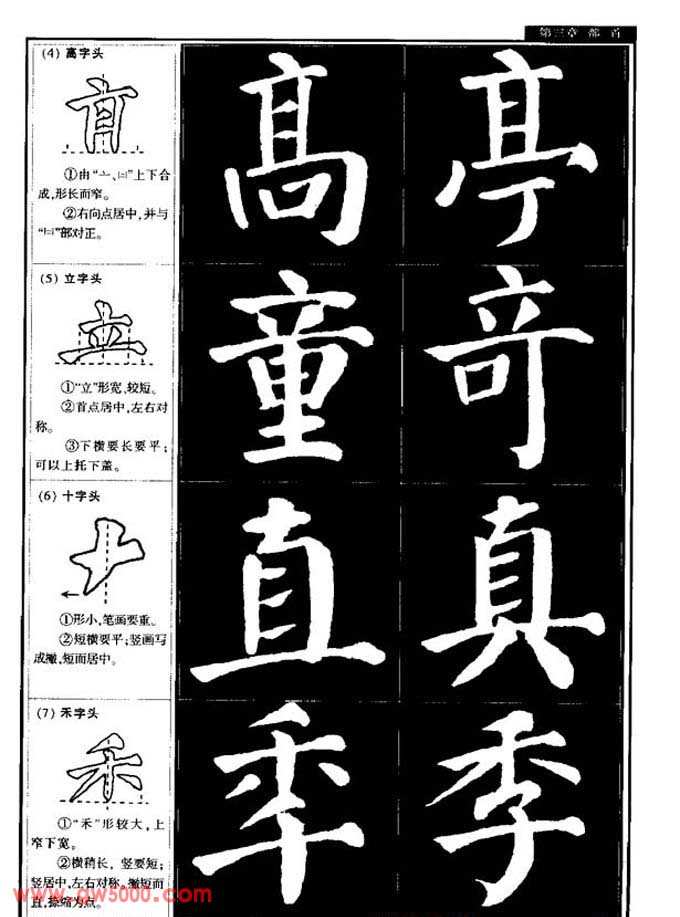 第三章 部 首
(4) 高字头
①由“亠、
”上下合
成,形长而窄。
②右向点居中,并与
”部对正。
髙 亭
(5) 立字头
立
①“立”形宽、较短。
②首点居中,左右对
称。
③下横要长要平;
可以上托下盖。
童 竒
(6) 十字头
①形小,笔画要重。
②短横要平;竖画写
成撇,短而居中。
直 真
(7) 禾字头
禾
①“禾”形较大,上
窄下宽。
②横稍长,竖要短;
竖居中,左右对称,撇短而
直,捺缩为点。
季
www.gw5000.com